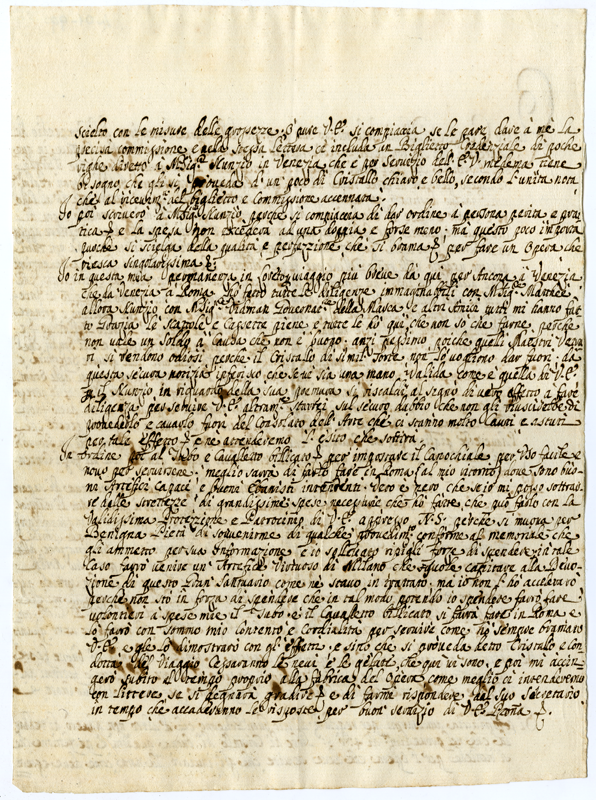 scielto con le misure delle grossezze. O pure V.E. si compiaccia se le pare dare à me la
precisa commissione e nella stessa lettera ci includa un Biglietto credenziale di poche
righe diretto à Monsig.r Nunzio in Venezia, che è per servizio dell'E.V. medema tiene
bisogno che gli si proveda d'un poco di Cristallo chiaro e bello, secondo l'unita nota
che al ricevim.to del biglietto e Commissione accennata.
Io poi scriverò à Monsig.r Nunzio, perche si compiaccia di dar ordine à persona perita e pra
tica e la spesa non eccederà ad una doppia e forse meno: ma questo poco importa
purche si scielga della qualità e perfezione che si brama per fare un Opera che
riesca singolarissima.
Io in questa mia permanenza in Loreto, viaggio più breve da qui per Ancona à Venezia
che da Venezia à Roma hò fatto tutte le diligenze immaginabili con Monsig.r
allora Nunzio con Monsig.r Governat.re della Marca, et altri Amici tutti mi hanno fat
to le scattole e Cassette piene, e tutte le hò qui che non so che farne, perche
non vale un soldo à causa che non è buono: anzi pessimo, poiche quelli Maestri Venezia
ni si rendono odiosi perche il Cristallo di simil sorte non lo vogliono dar fuori: da
questa sicura notizia inferisco che se vi sia una mano valida come è quella di V.E.
il Nunzio in riguardo della sua premura si riscaldi al segno di vero affetto à fare
diligenza per servire V.E. altram.te starei sul sicuro dubio che non gli riuscirebbe di
provederlo e cavarlo fuori del Consolato dell'Arte che ci stanno molto cauti e astuti
per tale effetto e ne attenderemo l'esito che sortirà.
In ordine poi al Tubo e Cavalletto dilicato per impostare il Canochiale per uso facile e
novo per servirsene, meglio sarrà di farlo fare in Roma (al mio ritorno) dove sono buo
ni Artefici capaci e buoni Ebanisti intendenti. Vero è però, che se io mi posso sottrar
re dalle strettezze di grandissime spese necessarie che hò fatte, che può farlo con la
Validissima Protezzione e Patrocinio di V.E. appresso N.S. perche si muova per
Benigna Pietà di sovenirme di qualche provedim.to conforme al memoriale che
gli ammetto per sua Informazione e io sollevato ripigli forze di spendere in tale
Caso farrò venire un Artefice Virtuoso di Milano che vuole capitare alla Devo
zione di questo Gran Santuario come ne stavo in trattato: ma io non l'hò accelerato
perche non stò in forza di spendere che in tal modo potendo io spendere farrò fare
volontieri à spese mie il Tubo: e il Cavalletto dilicato si farrà fare in Roma e
lo farrò con sommo mio contento e Cordialità per servire come hò sempre bramato
V.E. e glie lo dimostrarò con gl'effetti e sino che si proveda detto Cristallo e con
dotta del Viaggio cessaranno le nevi e le gelate che qui vi sono e poi mi accin
gerò subito al tempo proprio alla fabrica dell'Opera come meglio ci intenderemo
con lettere se si degnarà gradire e di farmi rispondere dal suo Secretario
in tempo che accaderanno le risposte per buon servizio di V.E. Padrona.